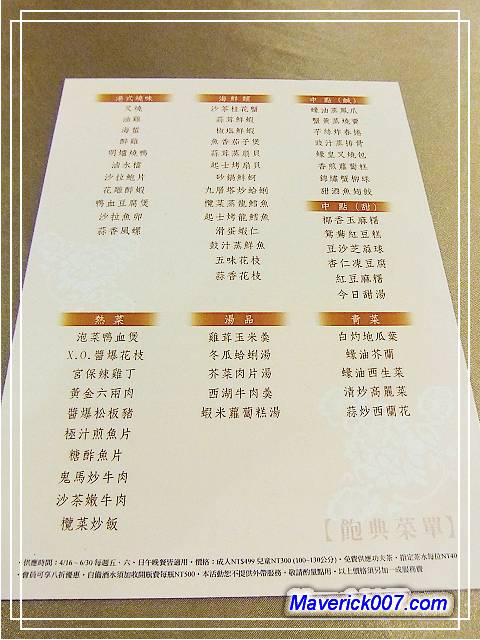 港式燒味
叉燒
油雞
海蜇
醉雞
明爐燒鴨
滷水檔
沙拉鮑片
花雕醉蝦
鴨血豆腐煲
沙拉魚卵
蒜香風螺
海鮮類
沙茶桂花蟹
蒜茸鮮蝦
椒塩鮮蝦
魚香茄子煲
蒜茸蒸扇貝
起士烤扇貝
砂鍋鮮蚵
九層塔炒蛤蜊
欖菜蒸龍鱈魚
起士烤龍鱈魚
滑蛋蝦仁
豉汁蒸鮮魚
五味花枝
蒜香花枝
中點(鹹)
蠔油蒸鳳爪
蟹黃蒸燒賣
芋絲炸春捲
豉汁蒸排骨
蠔皇叉燒包
香煎蘿蔔糕
錦繡蟹柳球
甜酒魚翅餃
中點(甜)
椰香玉麻糬
鴛鴦紅豆糕
豆沙芝蔴球
杏仁凍豆腐
紅豆麻糬
今日甜湯
熱菜
泡菜鴨血煲
X.O.醬爆花枝
宮保辣雞丁
黃金六兩肉
醬爆松板豬
極汁煎魚片
糖酢魚片
鬼馬炒牛肉
沙茶嫩牛肉
欖菜炒飯
湯品
雞茸玉米羹
冬瓜蛤蜊湯
芥菜肉片湯
西湖牛肉羹
蝦米蘿蔔糕湯
青菜
白灼地瓜葉
蠔油芥蘭
蠔油西生菜
清炒高麗菜
蒜炒西蘭花
【飽典菜單】
·供應時間：4/16~6/30 每週五、六、日午晚餐皆適用·價格：成人NT$499 兒童NT300 (100~130公分)·免費供應功夫茶·指定茶水每位NT40
·會員可享八折優惠·自備酒水須加收開瓶費每瓶NT500·本活動恕不提供外帶服務·敬請酌量點用·以上價格須另加一成服務費
Maverick007.com